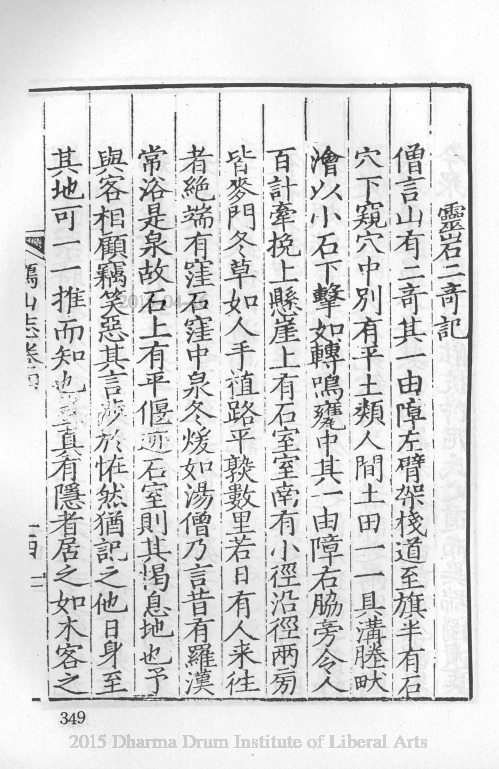 靈岩二奇記
僧言山有二奇其一由障左臂架棧道至旗半有石
穴下窺穴中別有平土類人間土田一一具溝塍畎
澮以小石下擊如轉鳴甕中其一由障右脇旁令人
百計牽挽上懸崖上有石室室南有小徑沿徑兩旁
皆麥門冬草如人手植路平數里若日有人来徃
者絶端有窪石窪中泉冬煖如湯僧乃言昔有羅漢
常浴是泉故石上有平偃迹石室則其憩息地也予
與客相顧竊笑惡其言涉於怪然猶記之他日身至
其地可一一推而知也真有隱者居之如木客之
山志卷
349
2015 Dharma Drum Institute of Liberal Arts